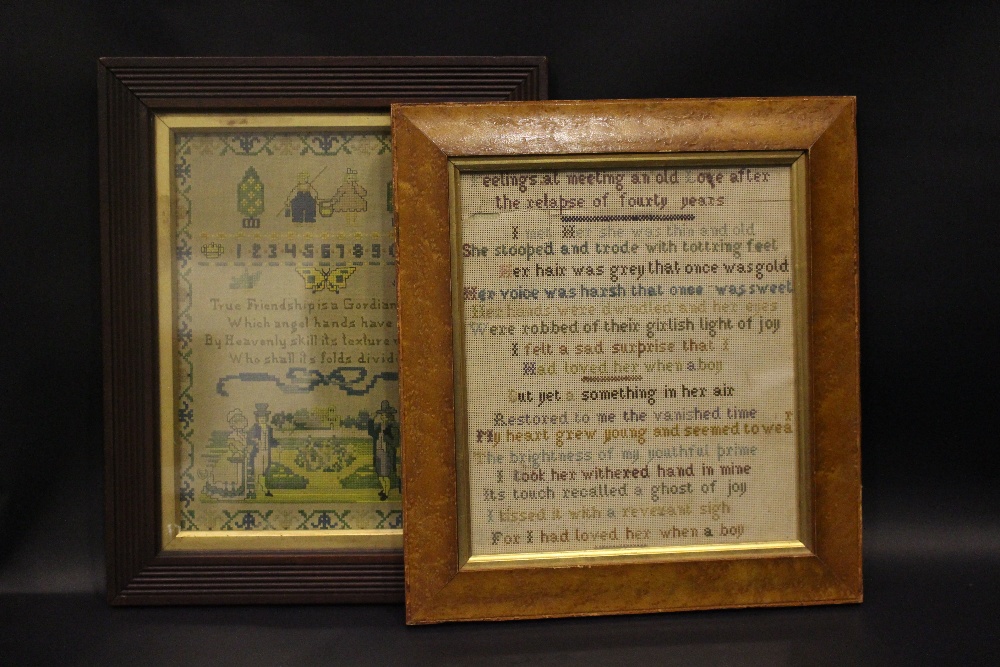 1 2 3 4 5 6 7 8 9
True Friendship is a Gordian
Which angel hands have
By Heavenly skill its texture
Who shall its folds divid
eelings at meeting an old Love after
the relapse of fourty years
I met Her she was thin and old
She stooped and trode with tottring feet
Her hair was grey that once was gold
Her voice was harsh that once was sweet
Her hands were dwindled and her eyes
Were robbed of their girlish light of joy
I felt a sad surprise that I
Had loved her when a boy
But yet a something in her air
Restored to me the vanished time
My heart grew young and seemed to wear
The brightness of my youthful prime
I took her withered hand in mine
Its touch recalled a ghost of joy
I kissed it with a reverant sigh
For I had loved her when a boy